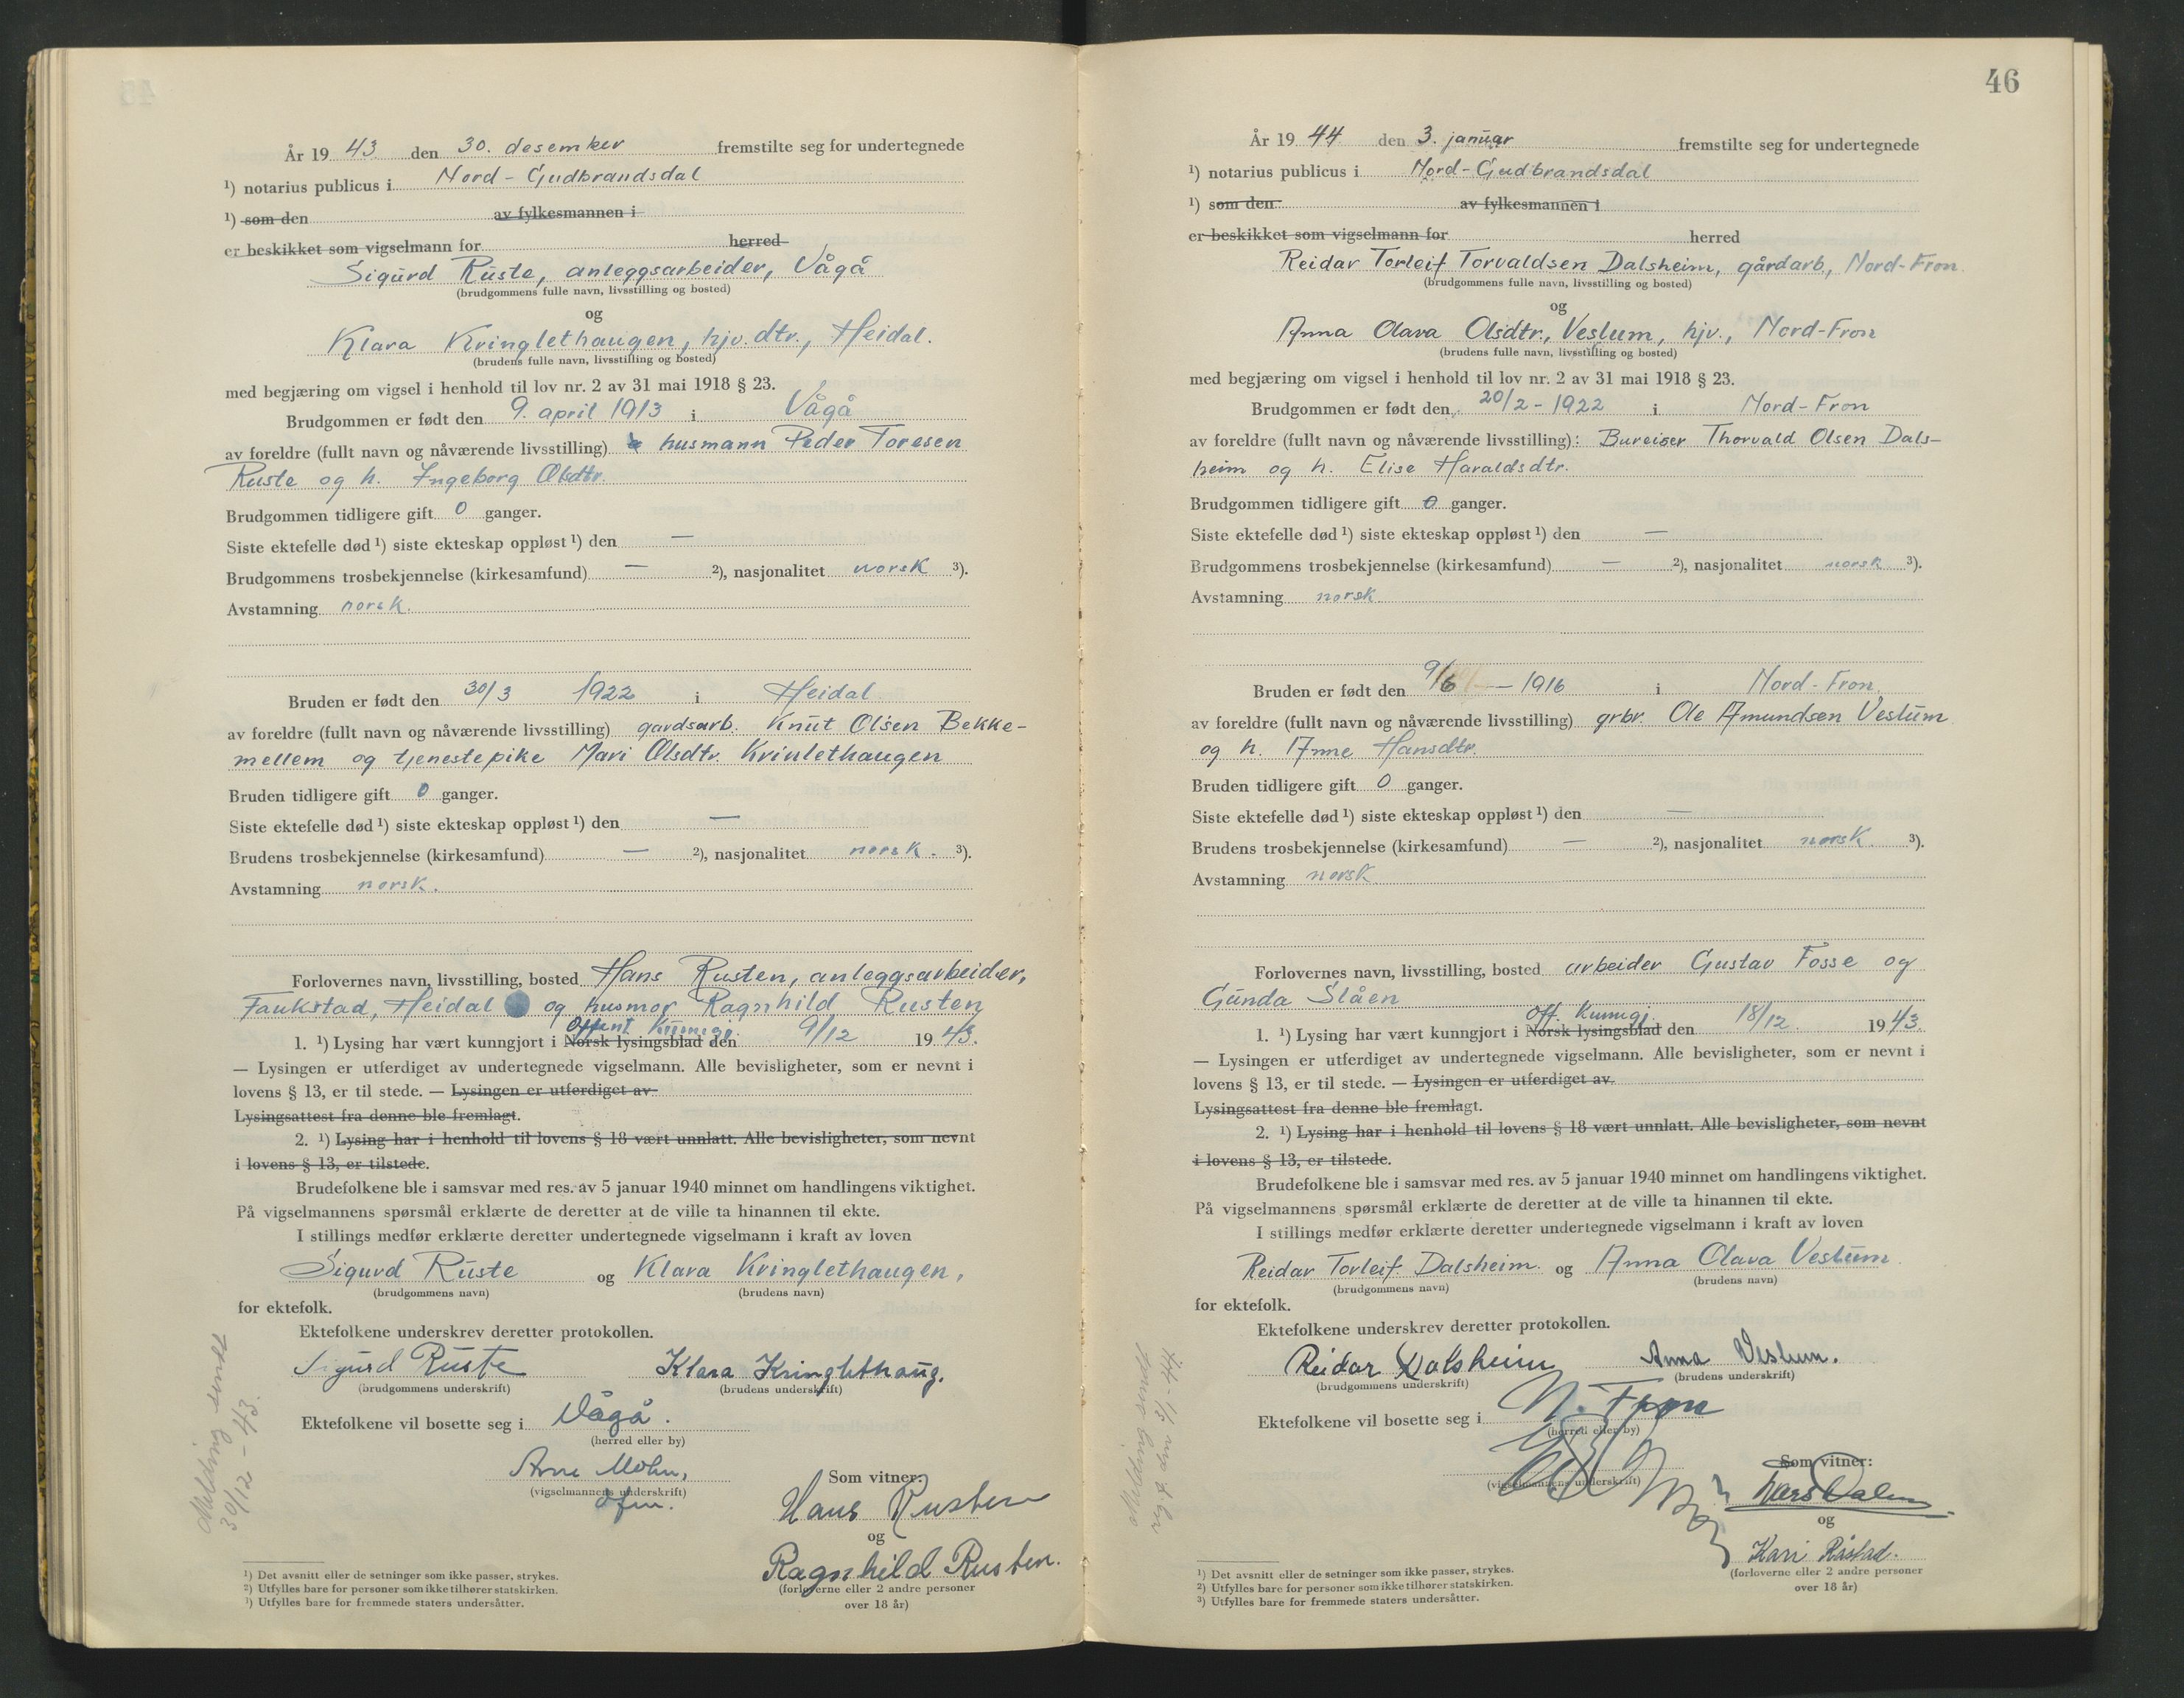 År 19 43 den 30. desember fremstilte seg for undertegnede
¹) notarius publicus i Nord-Gudbrandsdal
¹) som den av fylkesmannen i
er beskikket som vigselmann for herred
Sigurd Ruste, anleggsarbeider, Vågå
(brudgommens fulle navn, livsstilling og bosted)
og
Klara Kringlethaugen, hjv. dtr., Heidal.
(brudens fulle navn, livsstilling og bosted)
med begjæring om vigsel i henhold til lov nr. 2 av 31 mai 1918 § 23.
Brudgommen er født den 9. april 1913 i Vågå
av foreldre (fullt navn og nåværende livsstilling) husmann Peder Toresen
Ruste og h. Ingeborg Olsdtr.
Brudgommen tidligere gift 0 ganger.
Siste ektefelle død ¹) siste ekteskap oppløst ¹) den —
Brudgommens trosbekjennelse (kirkesamfund) — ²), nasjonalitet norsk ³).
Avstamning norsk.
Bruden er født den 30/3 1922 i Heidal
av foreldre (fullt navn og nåværende livsstilling) gardsarb. Knut Olsen Bekke-
mellem og tjenestepike Mari Olsdtr. Krinlethaugen
Bruden tidligere gift 0 ganger.
Siste ektefelle død ¹) siste ekteskap oppløst ¹) den —
Brudens trosbekjennelse (kirkesamfund) — ²), nasjonalitet norsk. ³).
Avstamning norsk.
Forlovernes navn, livsstilling, bosted Hans Rusten, anleggsarbeider,
Faukstad, Heidal og husmor Ragnhild Rusten
Offent. Kunngj.
1. ¹) Lysing har vært kunngjort i Norsk lysingsblad den 9/12 19 43.
— Lysingen er utferdiget av undertegnede vigselmann. Alle bevisligheter, som er nevnt i
lovens § 13, er til stede. — Lysingen er utferdiget av
Lysingsattest fra denne ble fremlagt.
2. ¹) Lysing har i henhold til lovens § 18 vært unnlatt. Alle bevisligheter, som nevnt
i lovens § 13, er tilstede.
Brudefolkene ble i samsvar med res. av 5 januar 1940 minnet om handlingens viktighet.
På vigselmannens spørsmål erklærte de deretter at de ville ta hinannen til ekte.
I stillings medfør erklærte deretter undertegnede vigselmann i kraft av loven
Sigurd Ruste og Klara Kringlethaugen,
(brudgommens navn) (brudens navn)
for ektefolk.
Ektefolkene underskrev deretter protokollen.
Sigurd Ruste Klara Kringlethaug.
(brudgommens underskrift) (brudens underskrift)
Ektefolkene vil bosette seg i Vågå.
(herred eller by)
Arne Mohn,
(vigselmannens underskrift)
dfm.
Som vitner:
Hans Rusten
og
Ragnhild Rusten.
(forloverne eller 2 andre personer
over 18 år)
Melding sendt
30/12 - 43.
¹) Det avsnitt eller de setninger som ikke passer, strykes.
²) Utfylles bare for personer som ikke tilhører statskirken.
³) Utfylles bare for fremmede staters undersåtter.
46
År 19 44 den 3. januar fremstilte seg for undertegnede
¹) notarius publicus i Nord-Gudbrandsdal
¹) som den av fylkesmannen i
er beskikket som vigselmann for herred
Reidar Torleif Torvaldsen Dalsheim, gårdarb., Nord-Fron
(brudgommens fulle navn, livsstilling og bosted)
og
Anna Olava Olsdtr., Veslum, hjv., Nord-Fron
(brudens fulle navn, livsstilling og bosted)
med begjæring om vigsel i henhold til lov nr. 2 av 31 mai 1918 § 23.
Brudgommen er født den 20/2 - 1922 i Nord-Fron
av foreldre (fullt navn og nåværende livsstilling): Bureiser Thorvald Olsen Dals-
heim og h. Elise Haraldsdtr.
Brudgommen tidligere gift 0 ganger.
Siste ektefelle død ¹) siste ekteskap oppløst ¹) den —
Brudgommens trosbekjennelse (kirkesamfund) — ²), nasjonalitet norsk ³).
Avstamning norsk
Bruden er født den 9/6 — 1916 i Nord-Fron.
av foreldre (fullt navn og nåværende livsstilling) grbr. Ole Amundsen Veslum
og h. Anne Hansdtr.
Bruden tidligere gift 0 ganger.
Siste ektefelle død ¹) siste ekteskap oppløst ¹) den —
Brudens trosbekjennelse (kirkesamfund) — ²), nasjonalitet norsk. ³).
Avstamning norsk
Forlovernes navn, livsstilling, bosted arbeider Gustav Fosse og
Gunda Slåen
off. Kunngj.
1. ¹) Lysing har vært kunngjort i Norsk lysingsblad den 18/12. 19 43.
— Lysingen er utferdiget av undertegnede vigselmann. Alle bevisligheter, som er nevnt i
lovens § 13, er til stede. — Lysingen er utferdiget av
Lysingsattest fra denne ble fremlagt.
2. ¹) Lysing har i henhold til lovens § 18 vært unnlatt. Alle bevisligheter, som nevnt
i lovens § 13, er tilstede.
Brudefolkene ble i samsvar med res. av 5 januar 1940 minnet om handlingens viktighet.
På vigselmannens spørsmål erklærte de deretter at de ville ta hinannen til ekte.
I stillings medfør erklærte deretter undertegnede vigselmann i kraft av loven
Reidar Torleif Dalsheim og Anna Olava Veslum
(brudgommens navn) (brudens navn)
for ektefolk.
Ektefolkene underskrev deretter protokollen.
Reidar Dalsheim Anna Veslum.
(brudgommens underskrift) (brudens underskrift)
Ektefolkene vil bosette seg i N. Fron
(herred eller by)
(vigselmannens underskrift)
Som vitner:
Lars Dalen
og
Kari Råstad.
(forloverne eller 2 andre personer
over 18 år)
Melding sendt
den 3/1-44.
¹) Det avsnitt eller de setninger som ikke passer, strykes.
²) Utfylles bare for personer som ikke tilhører statskirken.
³) Utfylles bare for fremmede staters undersåtter.